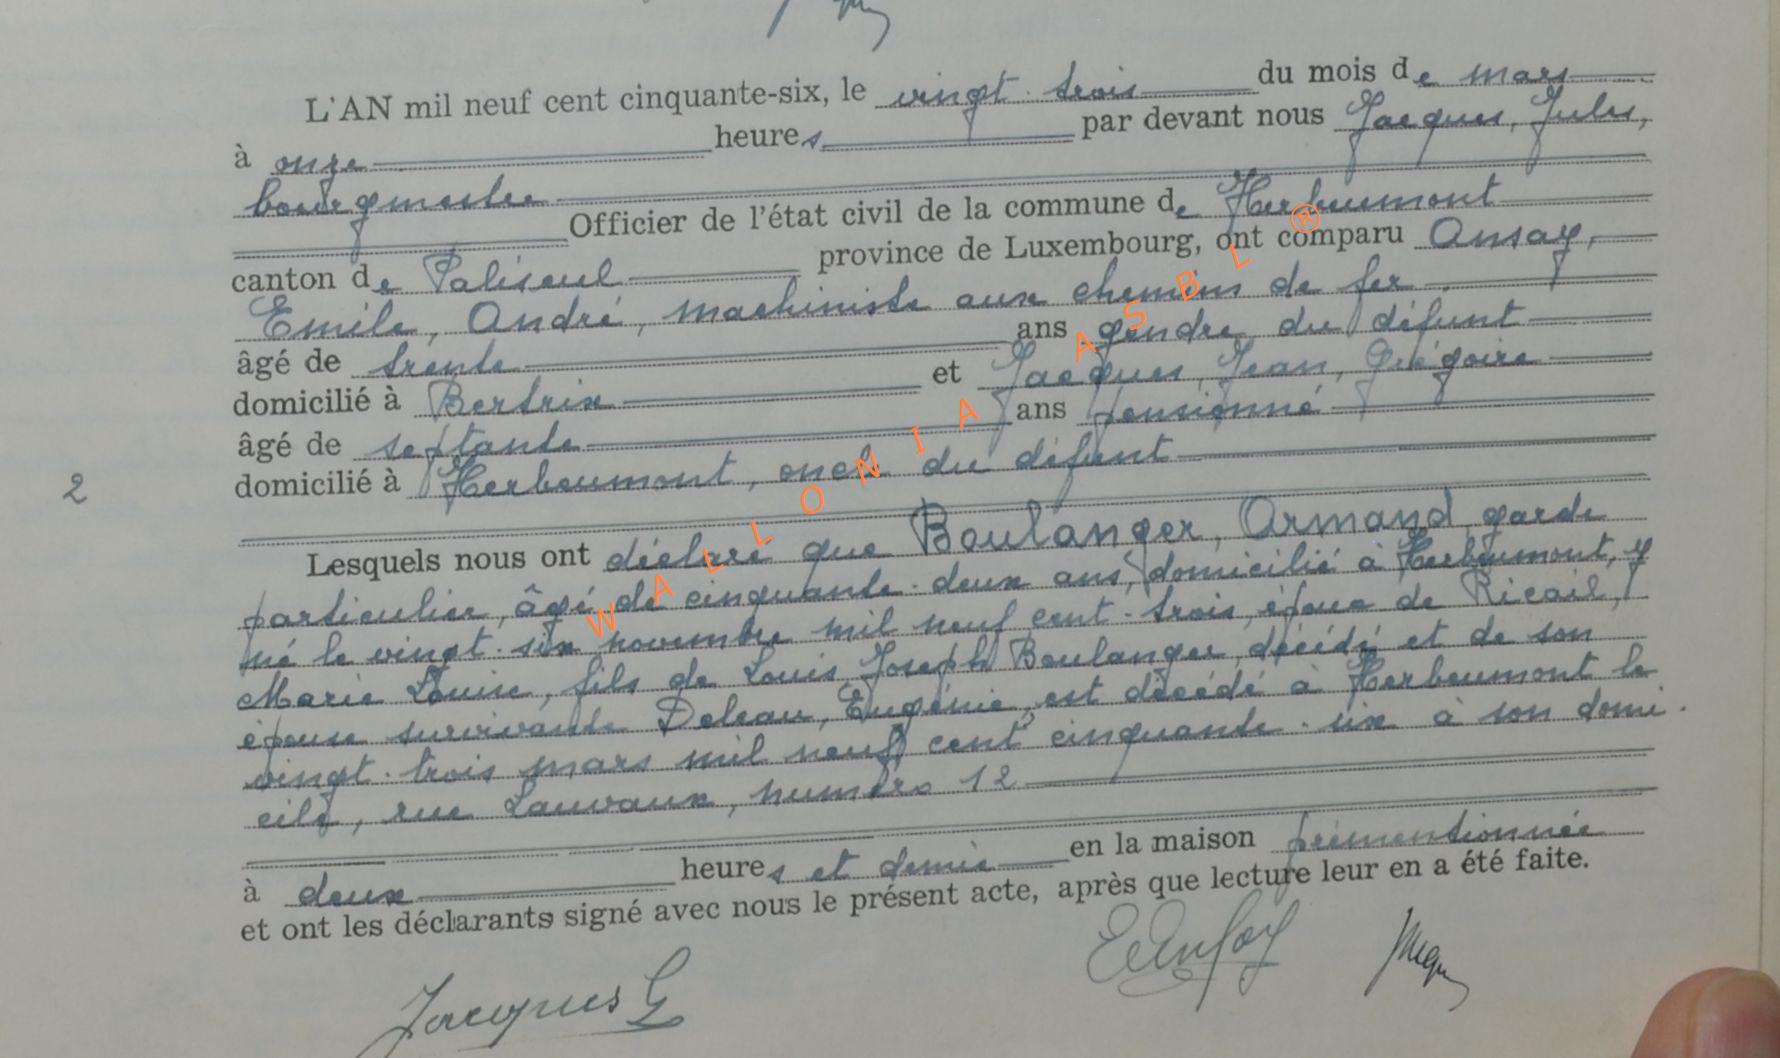 L'AN mil neuf cent cinquante-six, le vingt-trois du mois de mars
à onze heures par devant nous Jacques, Jules,
bourgmestre
Officier de l'état civil de la commune de Herbeumont
canton de Paliseul province de Luxembourg, ont comparu Ansay,
Emile, André, machiniste aux chemins de fer
âgé de trente ans gendre du défunt
domicilié à Bertrix et Jacques, Jean, Grégoire
âgé de septante ans pensionné
domicilié à Herbeumont, oncle du défunt
2
Lesquels nous ont déclaré que Boulanger, Armand, garde
particulier, âgé de cinquante-deux ans, domicilié à Herbeumont, y
né le vingt-six novembre mil neuf cent-trois, époux de Ricail,
Marie Louise, fils de Louis Joseph Boulanger, décédé et de son
épouse survivante Deleau, Eugénie, est décédé à Herbeumont le
vingt-trois mars mil neuf cent cinquante-six à son domi-
cile, rue Lauvaux, numéro 12
à deux heures et demie en la maison prémentionnée
et ont les déclarants signé avec nous le présent acte, après que lecture leur en a été faite.
Jacques G
EAnsay
WALLONIA ASBL ®